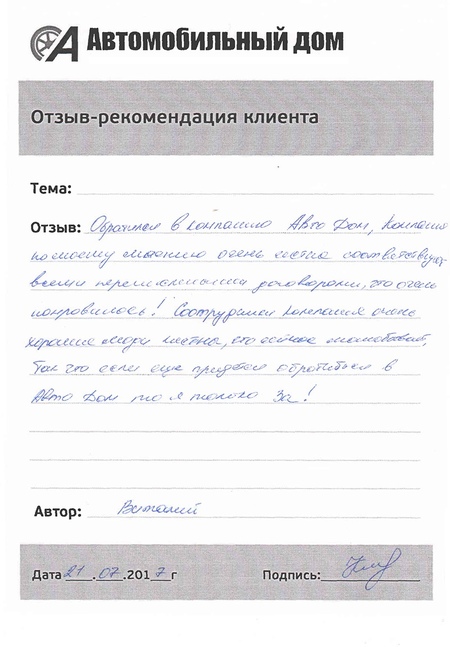 Автомобильный дом
Отзыв-рекомендация клиента
Тема:
Отзыв: Обратился в компанию Авто Дом, компания
по моему мнению очень честна соответствует
всеми договорами, что очень
понравилось! Сотрудники компания очень
хорошие люди честны, что
так что если еще придется обратиться в
Авто Дом то я только За!
Автор: Виталий
Дата 21.07.2017г Подпись: